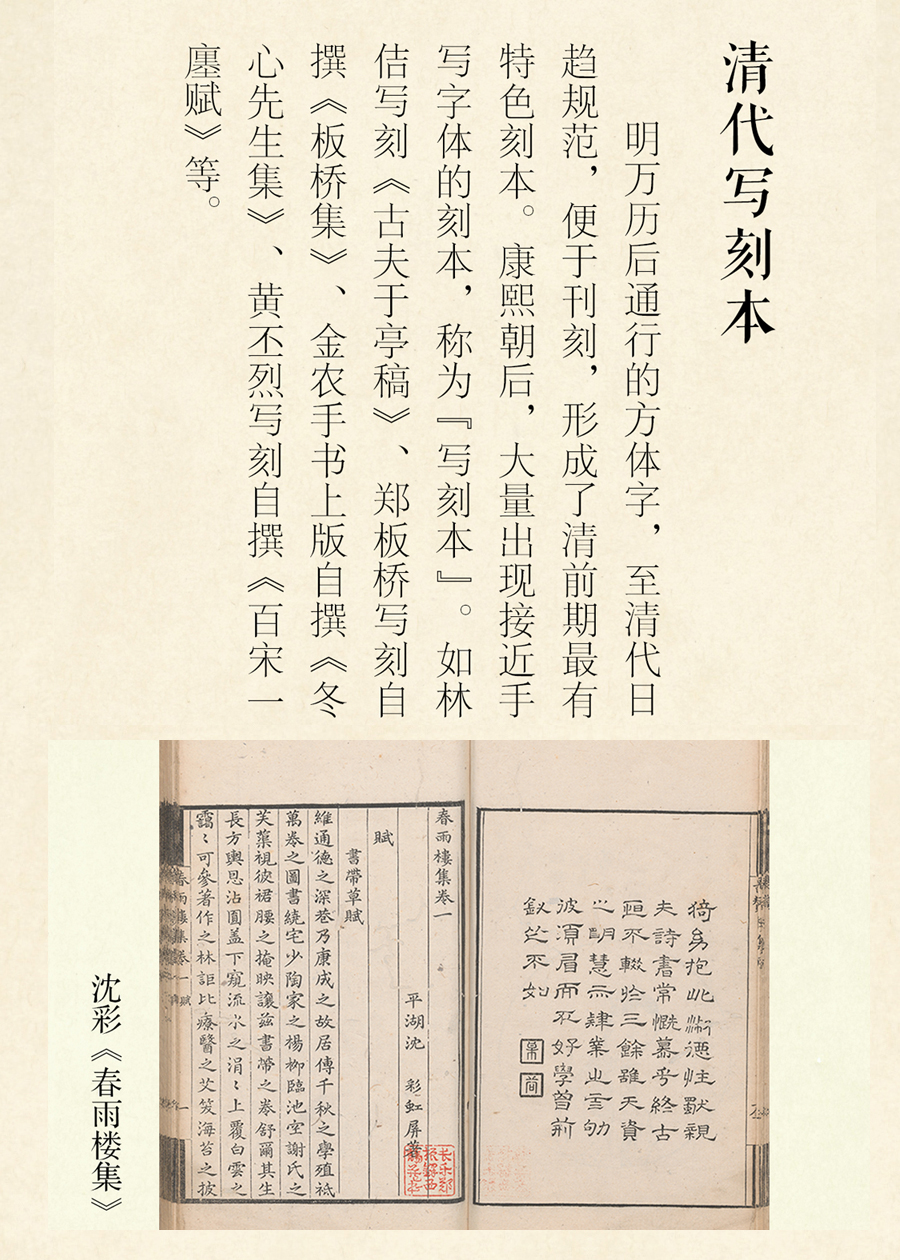 清代写刻本
明万历后通行的方体字，至清代日
趋规范，便于刊刻，形成了清前期最有
特色刻本。康熙朝后，大量出现接近手
写字体的刻本，称为『写刻本』。如林
佶写刻《古夫于亭稿》、郑板桥写刻自
撰《板桥集》、金农手书上版自撰《冬
心先生集》、黄丕烈写刻自撰《百宋一
廛赋》等。
抱此 德性 親
夫詩書常慨慕乎終古
恒不輟於三餘雖天資
之明慧亦肄業之 劬
彼須眉而不好學曾荊
釵之不如
春雨樓集卷一
平湖沈 彩 虹屏著
賦
書帶草賦
維通德之深巷乃康成之故居傳千秋之學殖祗
萬卷之圖書繞宅少陶家之楊栁臨池空謝氏之
芙蕖視彼裙腰之掩映讓兹書帶之卷舒爾其生
長方輿恩沾圓盖下窺流水之涓〻上覆白雲之
靄〻可參著作之林詎比療醫之艾笑海苔之披
春雨樓集卷一 賦
沈彩《春雨楼集》